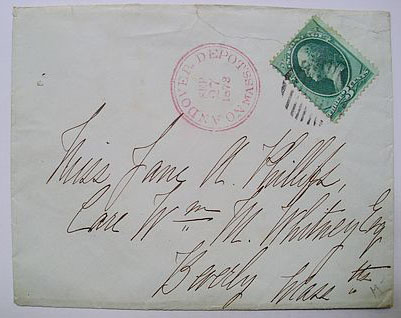 NO. ANDOVER DEPOT MASS
SEP
27
1873
Miss Jane A. Phillips,
Care Wm. M. Whitney Esq
Beverly
Mass tts